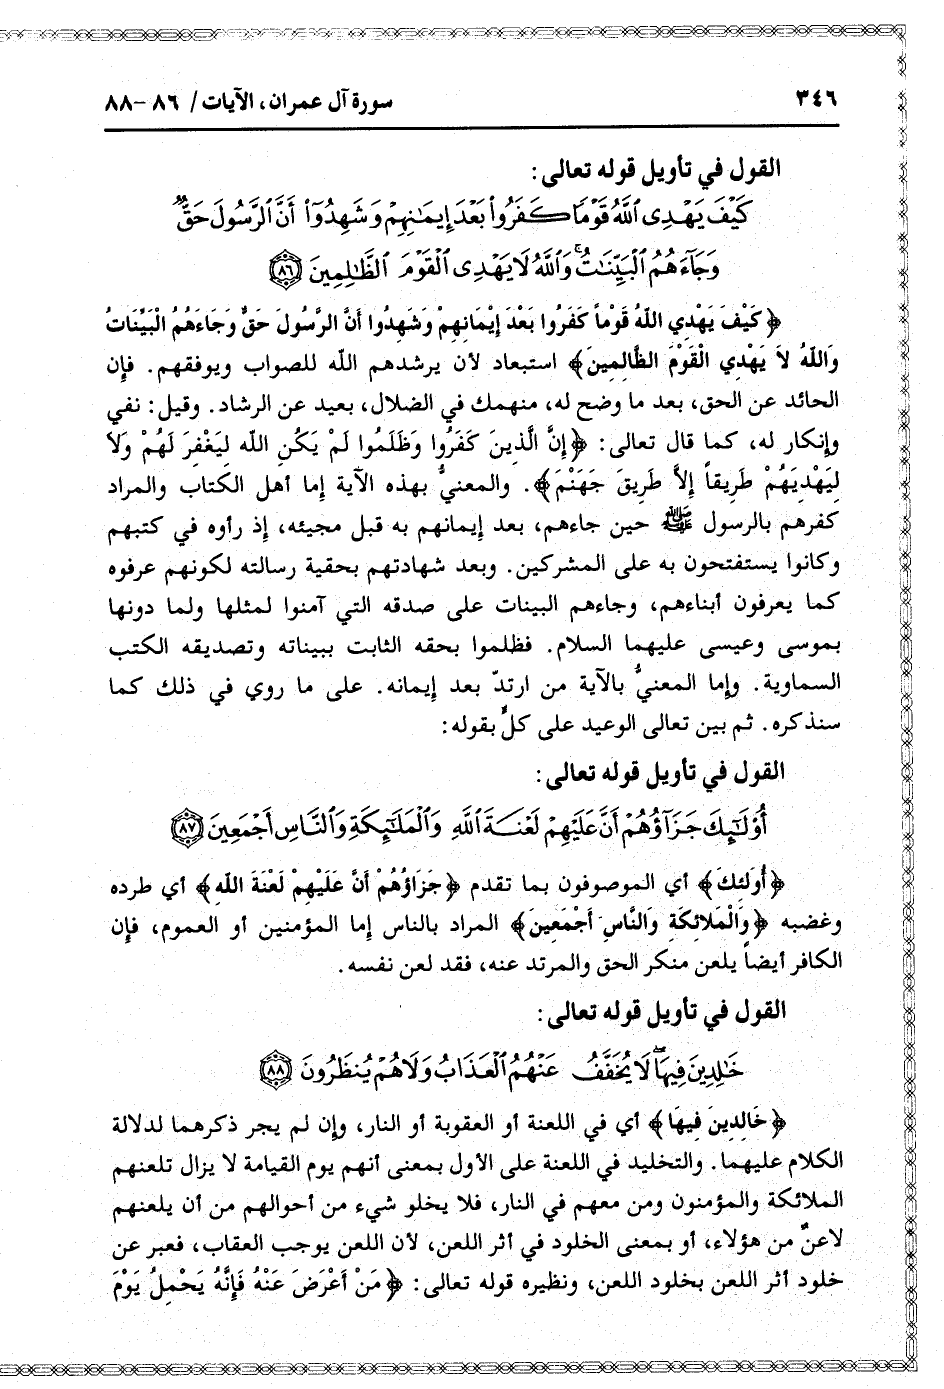 ٣٤٦
سورة آل عمران، الآيات / ٨٦ -٨٨
القول في تأويل قوله تعالى:
كَيْفَ يَهْدِى ٱللَّهُ قَوْمًا كَفَرُوا۟ بَعْدَ إِيمَـٰنِهِمْ وَشَهِدُوٓا۟ أَنَّ ٱلرَّسُولَ حَقٌّ
وَجَآءَهُمُ ٱلْبَيِّنَـٰتُ ۚ وَٱللَّهُ لَا يَهْدِى ٱلْقَوْمَ ٱلظَّـٰلِمِينَ ٨٦
﴿كَيْفَ يَهْدِي اللهُ قَوْماً كَفَرُوا بَعْدَ إِيْمَانِهِمْ وَشَهِدُوا أَنَّ الرَّسُولَ حَقٌّ وَجَاءَهُمُ الْبَيِّنَاتُ
وَاللهُ لاَ يَهْدِي الْقَوْمَ الظَّالِمِينَ﴾ استبعاد لأن يرشدهم الله للصواب ويوفقهم. فإن
الحائد عن الحق، بعد ما وضح له، منهمك في الضلال، بعيد عن الرشاد. وقيل: نفي
وإنكار له، كما قال تعالى: ﴿إِنَّ الَّذِينَ كَفَرُوا وَظَلَمُوا لَمْ يَكُنِ الله لِيَغْفِرَ لَهُمْ وَلاَ
لِيَهْدِيَهُمْ طَرِيقاً إِلاَّ طَرِيقَ جَهَنَّمَ﴾. والمعنيُّ بهذه الآية إما أهل الكتاب والمراد
كفرهم بالرسول ﷺ حين جاءهم، بعد إيمانهم به قبل مجيئه، إذ رأوه في كتبهم
وكانوا يستفتحون به على المشركين. وبعد شهادتهم بحقية رسالته لكونهم عرفوه
كما يعرفون أبناءهم، وجاءهم البينات على صدقه التي آمنوا لمثلها ولما دونها
بموسى وعيسى عليهما السلام. فظلموا بحقه الثابت ببيناته وتصديقه الكتب
السماوية. وإما المعنيُّ بالآية من ارتدّ بعد إيمانه. على ما روي في ذلك كما
سنذكره. ثم بين تعالى الوعيد على كلٍّ بقوله:
القول في تأويل قوله تعالى:
أُو۟لَـٰٓئِكَ جَزَآؤُهُمْ أَنَّ عَلَيْهِمْ لَعْنَةَ ٱللَّهِ وَٱلْمَلَـٰٓئِكَةِ وَٱلنَّاسِ أَجْمَعِينَ ٨٧
﴿أُولَئِكَ﴾ أي الموصوفون بما تقدم ﴿جَزَاؤُهُمْ أَنَّ عَلَيْهِمْ لَعْنَةَ الله﴾ أي طرده
وغضبه ﴿وَالْمَلائِكَةِ وَالنَّاسِ أَجْمَعِينَ﴾ المراد بالناس إما المؤمنين أو العموم، فإن
الكافر أيضاً يلعن منكر الحق والمرتد عنه، فقد لعن نفسه.
القول في تأويل قوله تعالى:
خَـٰلِدِينَ فِيهَا لَا يُخَفَّفُ عَنْهُمُ ٱلْعَذَابُ وَلَا هُمْ يُنظَرُونَ ٨٨
﴿خَالِدِينَ فِيهَا﴾ أي في اللعنة أو العقوبة أو النار، وإن لم يجر ذكرهما لدلالة
الكلام عليهما. والتخليد في اللعنة على الأول بمعنى أنهم يوم القيامة لا يزال تلعنهم
الملائكة والمؤمنون ومن معهم في النار، فلا يخلو شيء من أحوالهم من أن يلعنهم
لاعنٌ من هؤلاء، أو بمعنى الخلود في أثر اللعن، لأن اللعن يوجب العقاب، فعبر عن
خلود أثر اللعن بخلود اللعن، ونظيره قوله تعالى: ﴿مَنْ أَعْرَضَ عَنْهُ فَإِنَّهُ يَحْمِلُ يَوْمَ